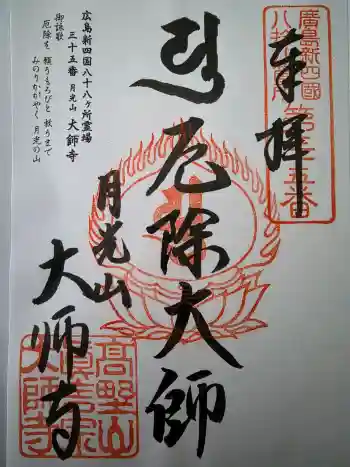 廣島新四國
八拾八ヶ所
第三十五番
奉拝
厄除大師
月光山
大师寺
高野山
真言宗
大師寺
広島新四国八十八ヶ所霊場
三十五番 月光山 大師寺
御詠歌
厄除を 頼うもろびと 救うまで
みのりかがやく 月光の山